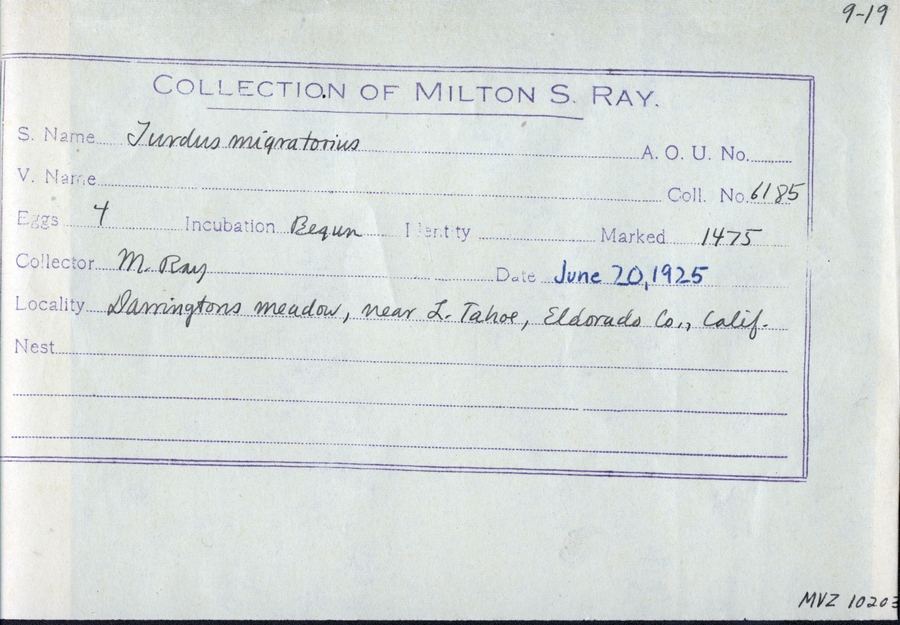 9-19
COLLECTION OF MILTON S. RAY.
S. Name Turdus migratorius A. O. U. No.
V. Name Coll. No. 6185
Eggs 4 Incubation Begun Identity Marked 1475
Collector M. Ray Date June 20, 1925
Locality Darringtons meadow, near L. Tahoe, Eldorado Co., Calif.
Nest
MVZ 10203